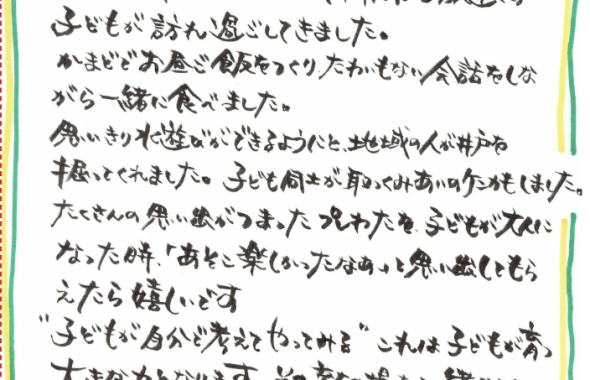 子どもが訪れ過ごしてきました。
かまどでお昼ご飯をつくり、たわいもない会話をしな
がら一緒に食べました。
思いきり水遊びができるようにと、地域の人が井戸を
掘ってくれました。子ども同士が取っくみあいのケンカもしました。
たくさんの思い出がつまった 子どもが大人に
なった時、「あそこ楽しかったなあ」と思い出してもら
えたら嬉しいです
"子どもが自分で考えてやってみる"これは子どもが育つ
大きな力となります